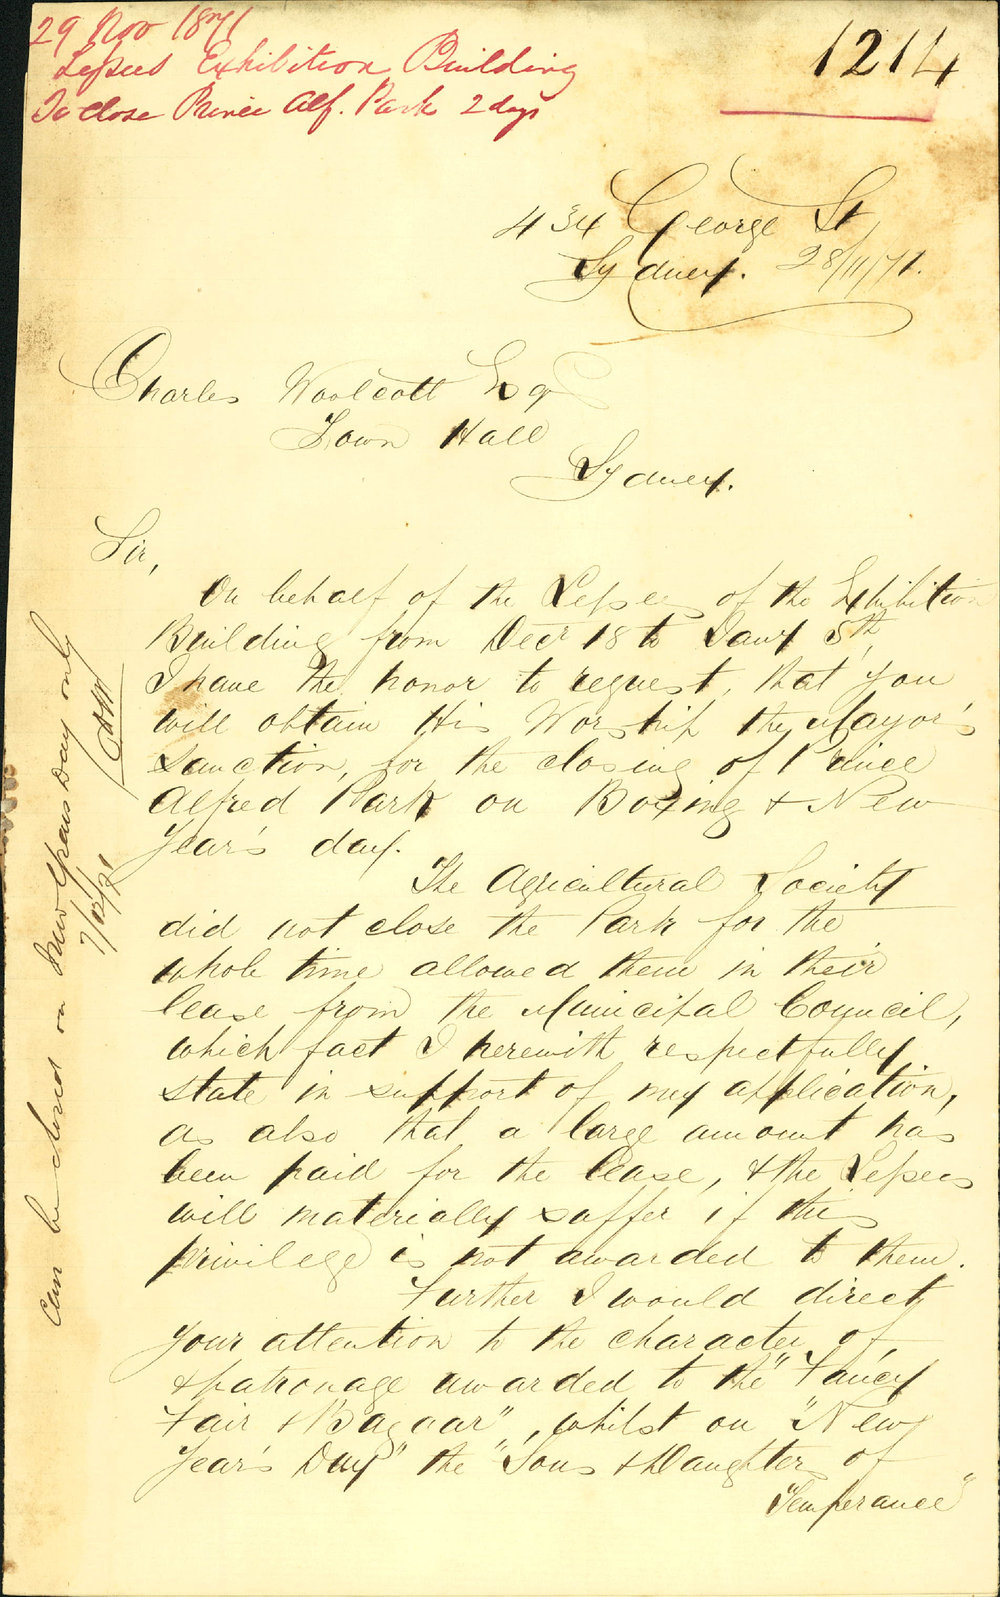 29 Nov 1871
Lessees Exhibition Building
To close Prince Alf. Park 2 days
1214
434 George St
Sydney. 28/11/71.
Charles Woolcott Esq
Town Hall
Sydney.
Sir,
On behalf of the Lessees of the Exhibition
Building from Decr 18 to Jany 5th,
I have the honor to request, that you
will obtain His Worship the Mayor's
sanction, for the closing of Prince
Alfred Park on Boxing & New
Year's day.
The Agricultural Society
did not close the Park for the
whole time allowed them in their
lease from the Municipal Council,
which fact I herewith respectfully
state in support of my application,
as also that a large amount has
been paid for the lease, & the Lessees
will materially suffer if this
privilege is not awarded to them.
Further I would direct
your attention to the character of,
& patronage awarded to the "Fancy
Fair & Bazaar", whilst on "New
Year's Day" the "Sons & Daughters of
Temperance"
Can be closed on New Years Day only
7/12/71